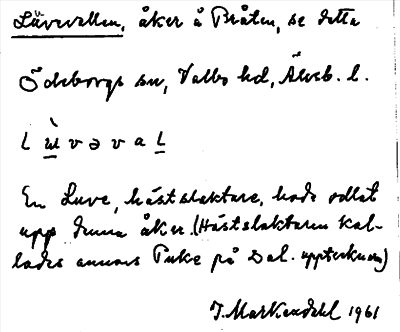 Luvevallen, åker å Bråten, se detta
Ödeborgs sn, Valbo hd, Älvsb. l.
l ù v ə v a l
En Luve, hästslaktare, hade odlat
upp denna åker. (Hästslaktaren kal-
lades annars Puke på Dal. upptecknaren)
J. Markendahl 1961